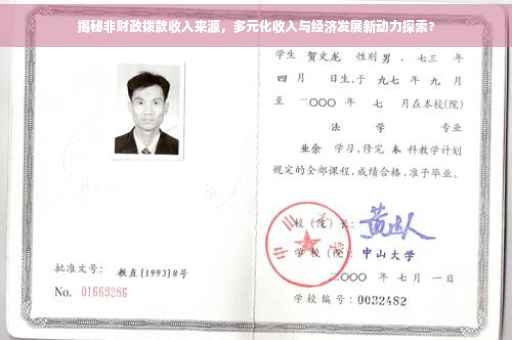 揭秘非财政拨款收入来源，多元化收入与经济发展新动力探索？
学生 贺文龙 性别 男 ，七三 年
四 月 日生，于 九七 年 九 月
至 二〇〇〇 年 七 月在本校(院)
法 学 专业
业余 学习，修完 本 科教学计划
规定的全部课程，成绩合格，准予毕业。
校（院）长：
学 校（院）：中山大学
二〇〇〇 年 七 月 一 日
批准文号： 教直[1993]8号
No. 01669286
学校编号：0032482